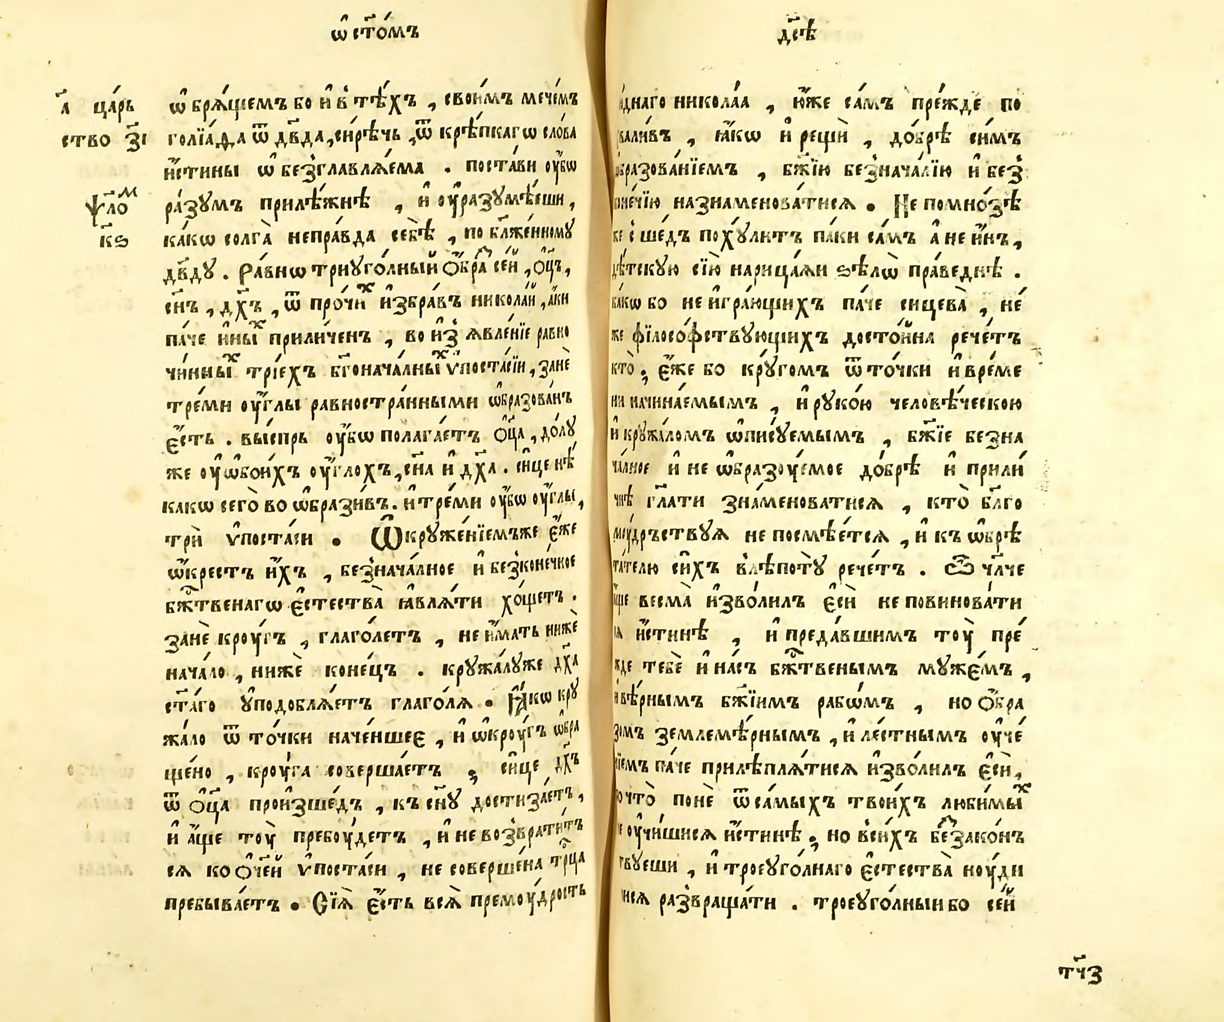 ѡ҆ ст҃омъ
а҃ ца́рь
ство з҃і
ѱало́м
к҃ѕ
ѡ҆брѧ́щемъ бо и҆ в̾ тѣ́хъ , свои́мъ мече́мъ
голїа́ѳа ѿ дв҃да,си́рѣчь ,ѿ крѣ́пкагѡ сло́ва
и҆́стины ѡ҆безглавлѧ́ема . поста́ви ᲂу҆́бѡ
ра́зумъ прилѣ́жнѣ , и҆ ᲂу҆разумѣ́еши ,
ка́кѡ солга̀ непра́вда себѣ̀ , по бл҃же́нному
дв҃ду . Ра́внѡ триуго́лный ѻ҆́бра сей , ѻ҆ц҃ъ,
сн҃ъ , дх҃ъ , ѿ про́чиⷯ и҆збра́въ никола́й ,а҆́ки
па́че и҆ны́ⷯ прили́ченъ , во и҆з̾ѧвле́нїе ра́вно
чи́нныⷯ трїе́хъ бг҃онача́лныⷯ ѵ҆поста́сїи , занѐ
треми́ ᲂу҆́глы равностра́нными ѡ҆бразова́нъ
є҆́сть . вы́спрь ᲂу҆́бѡ полага́етъ ѻ҆ц҃а , до́лу
же ᲂу҆ ѡ҆бои́хъ ᲂу҆́глохъ , сн҃а и҆ дх҃а . си́це нѣ́
какѡ сего̀ во ѡ҆брази́въ . и҆ тре́ми ᲂу҆́бѡ ᲂу҆́глы ,
трѝ ѵ҆поста́си . Ѡ҆круже́нїемъже є҆́же
ѡ҆́крестъ и҆́хъ , безнача́лное и҆ безконе́чное
бж҃твенагѡ є҆стества̀ ꙗ҆влѧ́ти хо́щетъ .
занѐ кро́угъ , глаго́летъ , не и҆́мать нижѐ
нача́ло , нижѐ коне́цъ . кружа́луже дх҃а
ст҃а́го ᲂу҆подоблѧ́етъ глаго́лѧ . Ꙗ҆́кѡ кру
жа́ло ѿ то́чки наче́ншеє , и҆ ѡ҆кро́угъ ѡ҆бра
ще́но , кро́уга соверша́етъ ; си́це дх҃ъ
ѿ ѻ҆ц҃а произше́дъ , къ сн҃у достиза́етъ ,
и҆ а҆́ще тоу̀ пребоу́детъ , и҆ не возврати́тъ
сѧ ко ѻ҆́ч҃ей ѵ҆поста́си , не соверше́на трⷪ҇ца
пребыва́етъ . Сїѧ̀ є҆́сть всѧ̀ премоу́дрость
дсѣ
днаго никола́а , ю҆́же са́мъ пре́жде по
вали́въ , ꙗ҆́кѡ и҆ рещѝ , до́брѣ си́мъ
бразова́нїемъ , бж҃їю безнача́лїю и҆ без̾
коне́чїю назнаменова́тисѧ . Не помно́зѣ
же с̾ше́дъ поху́литъ па́ки са́мъ а҆ не и҆́нъ ,
дѣ́тскую сїю̀ нарица́ѧи ѕѣлѡ̀ пра́веднѣ .
ка́кѡ бо не и҆гра́ющихъ па́че сицева̀ , не́
же фїлосо́фствующихъ досто́йна рече́тъ
кто̀ ; є҆́же бо кру́гомъ ѿ то́чки и҆ вре́ме
ни начина́емымъ , и҆ руко́ю человѣ́ческою
и҆ кружа́ломъ ѡ҆пису́емымъ , бж҃їе безна
ча́лное и҆ не ѡ҆бразоу́емое до́брѣ и҆ прили́
чнѣ гл҃ати зна́меноватисѧ , кто̀ бл҃го
моу́дръствуѧ не посмѣе́тсѧ , и҆ къ ѡ҆брѣ
та́телю си́хъ влѣпоту̀ рече́тъ . Ѽ чл҃че
а҆́ще весма̀ и҆зво́лилъ є҆сѝ не повинова́ти
сѧ и҆́стинѣ , и҆ преда́вшимъ тоу̀ пре́
жде тебѐ и҆ на́съ бж҃твенымъ муже́мъ ,
и҆ вѣ́рнымъ бж҃їимъ рабѡ́мъ , но ѻ҆́бра
зомъ землемѣ́рнымъ , и҆ ле́стнымъ ᲂу҆че́
нїемъ па́че прилѣплѧ́тисѧ и҆зво́лилъ є҆сѝ,
по что̀ понѐ ѿ са́мыхъ твои́хъ люби́мыⷯ
не ᲂу҆чи́шисѧ и҆́стинѣ ; но в̾си́хъ беззако́нъ
твуеши , и҆ троеуго́лнаго є҆стества̀ ноу́ди
шисѧ развраща́ти . троеуго́лныи бо се́й
тч҃з